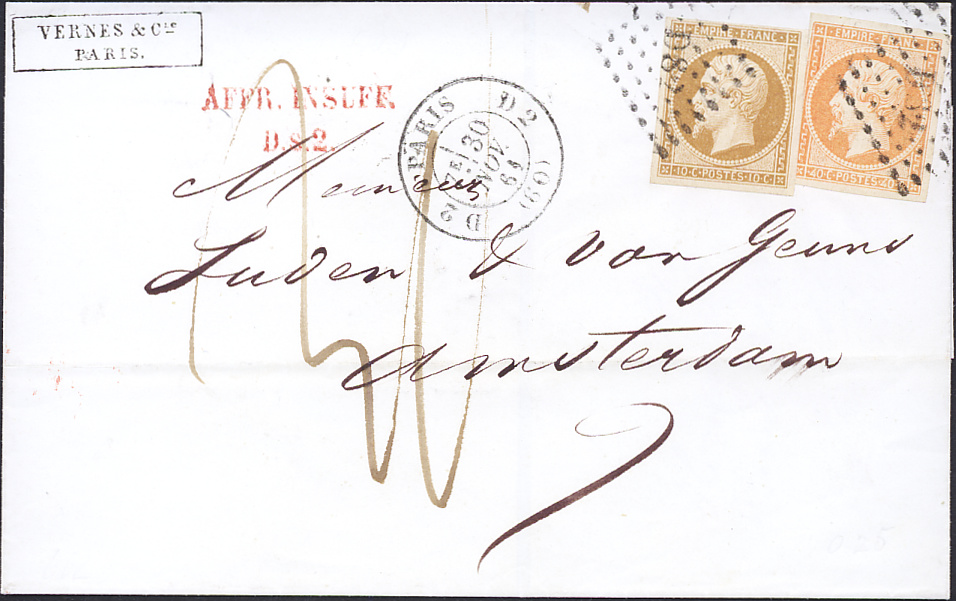 VERNES & Cie
PARIS.
AFFR. INSUFF.
D.S.2.
PARIS D2 (60)
D2
EMPIRE FRANC
10·C·POSTES·10·C
EMPIRE FRANC
40·C·POSTES·40·C
Messieurs
Luden & van Geuns
Amsterdam